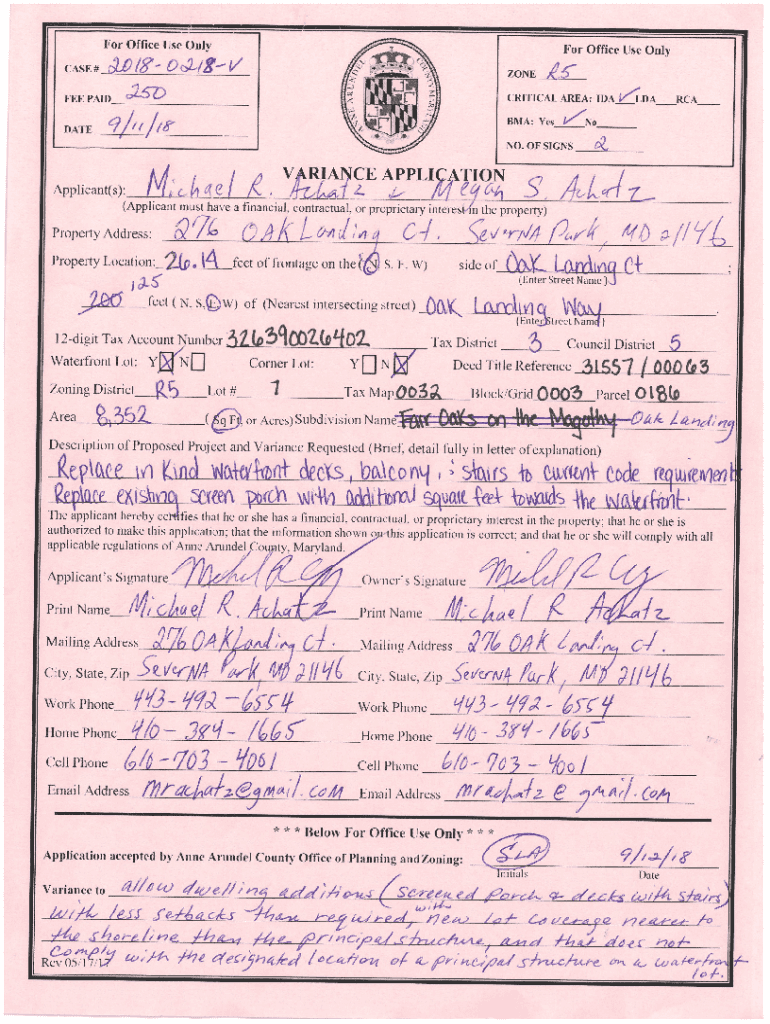 For Office Use Only
CASE # 2018-0218-V
FEE PAID 250
DATE 9/11/18
ANNE ARUNDEL COUNTY MARYLAND
For Office Use Only
ZONE R5
CRITICAL AREA: IDA ✓ LDA RCA
BMA: Yes ✓ No
NO. OF SIGNS 2
VARIANCE APPLICATION
Applicant(s): Michael R. Achatz & Megan S. Achatz
(Applicant must have a financial, contractual, or proprietary interest in the property)
Property Address: 276 OAK Landing Ct. Severna Park, MD 21146
Property Location: 26.14 feet of frontage on the (N, S, E, W) side of Oak Landing Ct ;
(Enter Street Name)
200 125 feet (N, S, E, W) of (Nearest intersecting street) Oak Landing Way .
(Enter Street Name)
12-digit Tax Account Number 326390026402 Tax District 3 Council District 5
Waterfront Lot: Y ☒ N ☐ Corner Lot: Y ☐ N ☒ Deed Title Reference 31557/00063
Zoning District R5 Lot # 7 Tax Map 0032 Block/Grid 0003 Parcel 0186
Area 8,352 (Sq Ft or Acres) Subdivision Name Fair Oaks on the Magothy Oak Landing
Description of Proposed Project and Variance Requested (Brief, detail fully in letter of explanation)
Replace in Kind waterfront decks, balcony, & stairs to current code requirements
Replace existing screen porch with additional square feet towards the waterfront.
The applicant hereby certifies that he or she has a financial, contractual, or proprietary interest in the property; that he or she is
authorized to make this application; that the information shown on this application is correct; and that he or she will comply with all
applicable regulations of Anne Arundel County, Maryland.
Applicant's Signature Owner's Signature
Print Name Michael R. Achatz Print Name Michael R Achatz
Mailing Address 276 OAK Landing Ct. Mailing Address 276 OAK Landing Ct.
City, State, Zip Severna Park, MD 21146 City, State, Zip Severna Park, MD 21146
Work Phone 443-492-6554 Work Phone 443-492-6554
Home Phone 410-384-1665 Home Phone 410-384-1665
Cell Phone 610-703-4001 Cell Phone 610-703-4001
Email Address mrachatz@gmail.com Email Address mrachatz@gmail.com
* * * Below For Office Use Only * * *
Application accepted by Anne Arundel County Office of Planning and Zoning: SLA 9/12/18
Initials Date
Variance to allow dwelling additions (screened porch & decks with stairs)
with less setbacks than required, with new lot coverage nearer to
the shoreline than the principal structure, and that does not
comply with the designated location of a principal structure on a waterfront
lot.
Rev 05/17/17